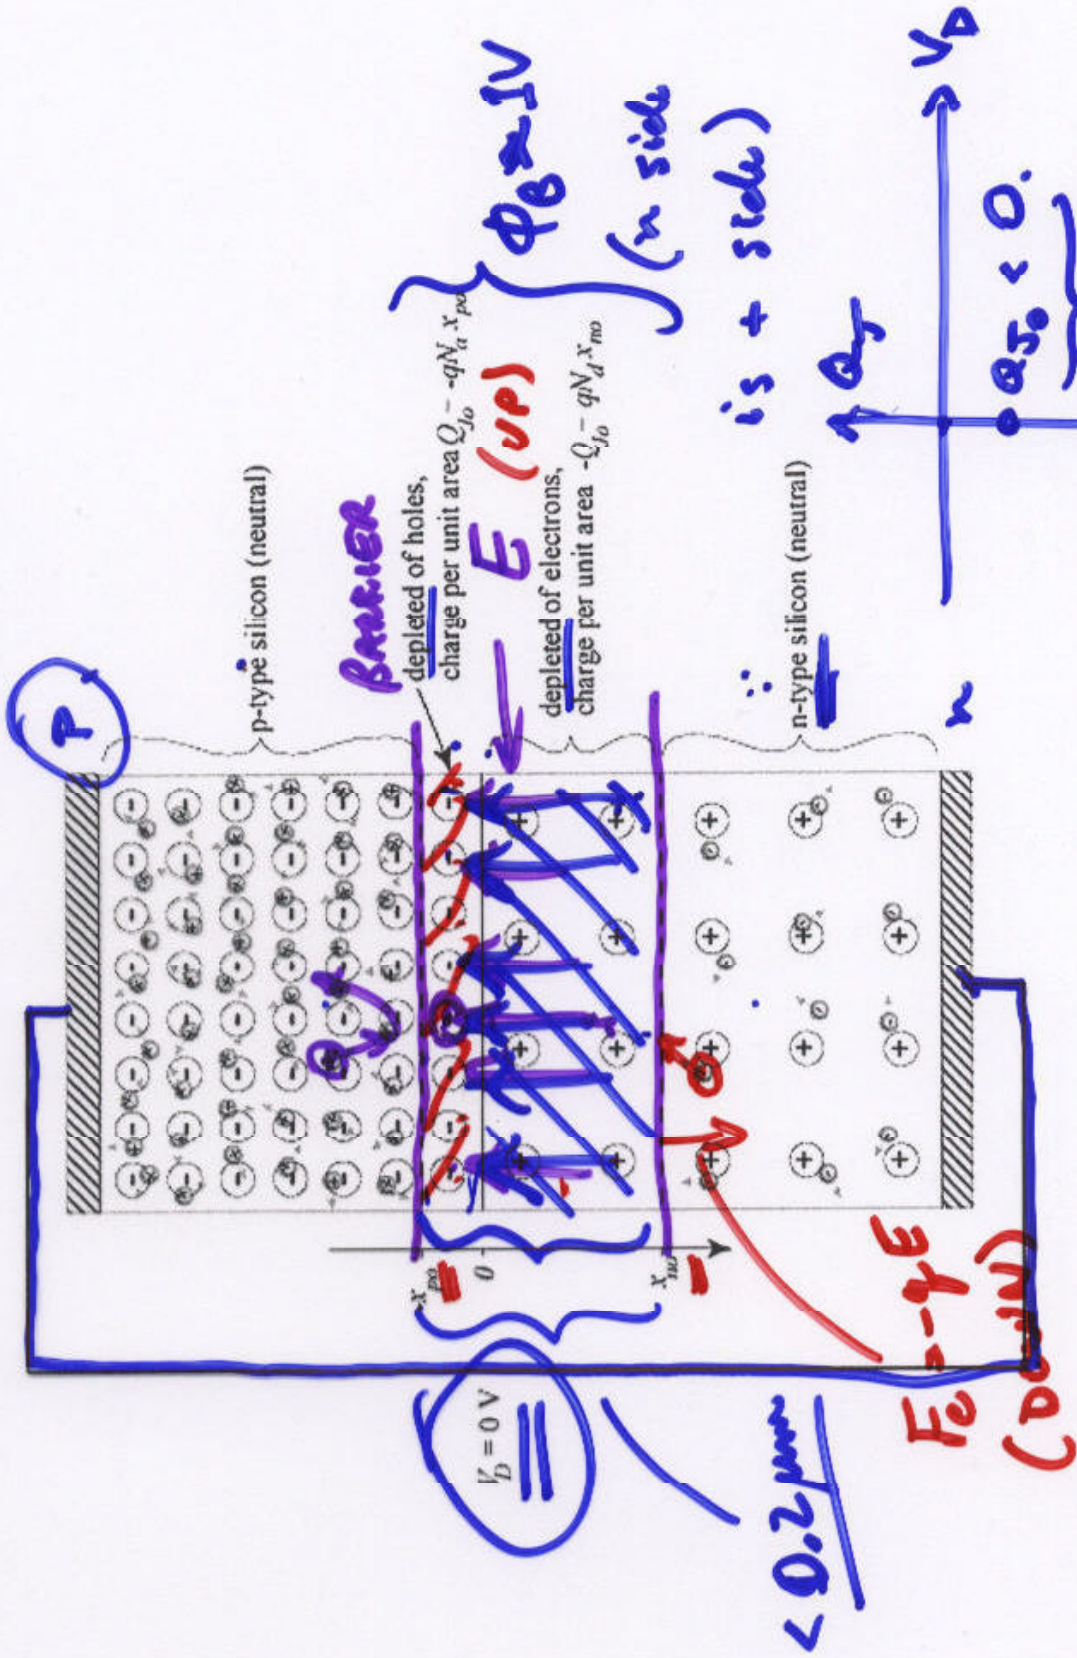 P
p-type silicon (neutral)
BARRIER
depleted of holes,
charge per unit area Q_Jo = -qN_a x_po
E (UP)
depleted of electrons,
charge per unit area -Q_Jo = qN_d x_no
ϕ_B ≈ 1V
(n side
is + side)
n-type silicon (neutral)
n
-x_po
0
x_no
V_D = 0 V
< 0.2 μm
F_e = -qE
(DOWN)
Q_J
V_D
Q_Jo < 0.